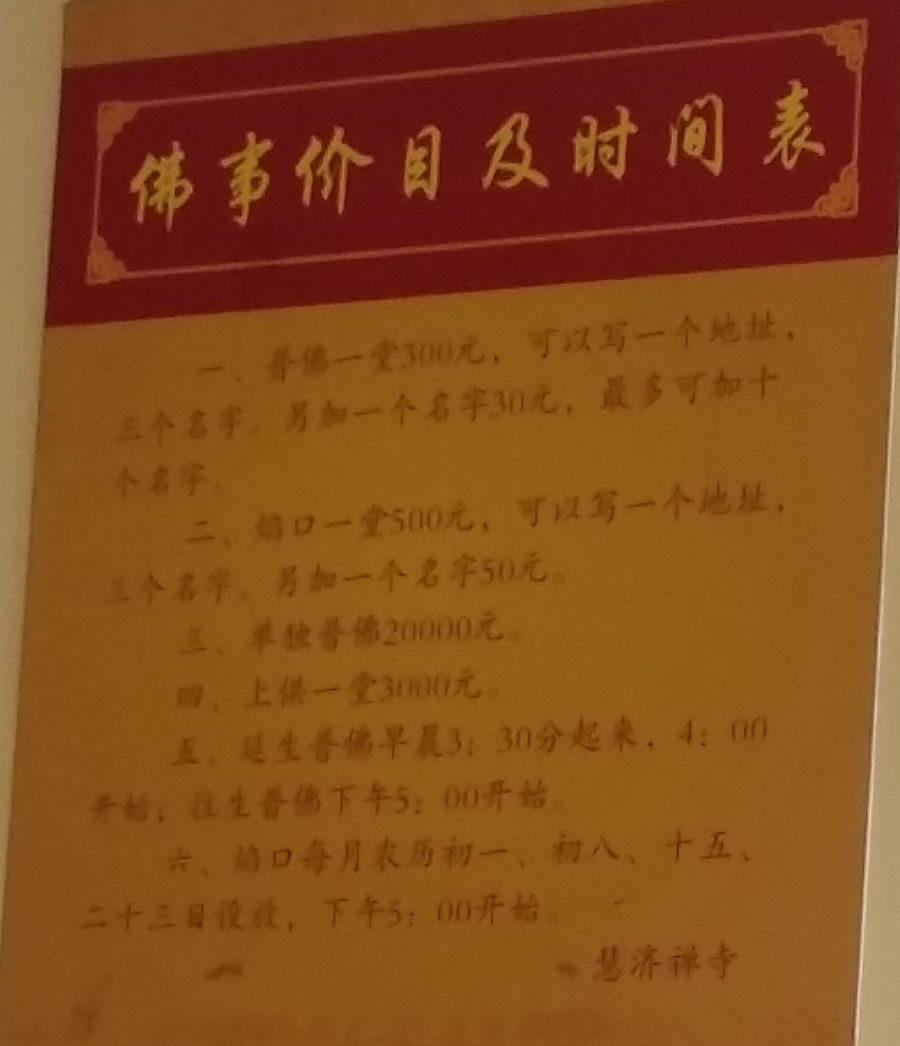 佛事价目及时间表
一、普佛一堂300元，可以写一个地址，
三个名字。另加一个名字30元，最多可加十
个名字。
二、焰口一堂500元，可以写一个地址，
三个名字。另加一个名字50元。
三、单独普佛20000元。
四、上供一堂3000元。
五、延生普佛早晨3：30分起来，4：00
开始；往生普佛下午5：00开始。
六、焰口每月农历初一、初八、十五、
二十三日设放，下午5：00开始。
慧济禅寺